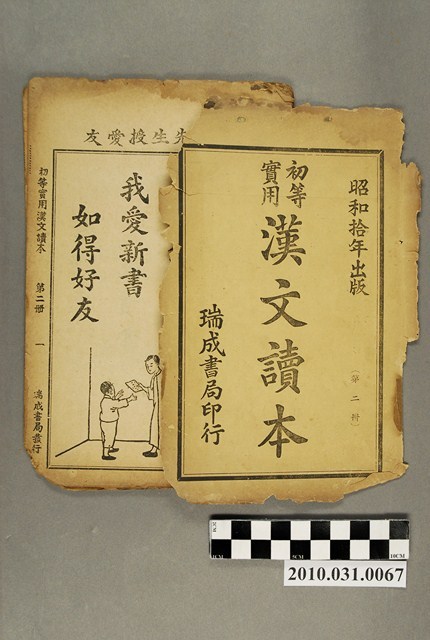 昭和拾年出版
初等
實用
漢文讀本
（第二冊）
瑞成書局印行
友愛授生先
我愛新書
如得好友
初等實用漢文讀本 第二冊 一 瑞成書局發行
1CM
5CM
10CM
2010.031.0067